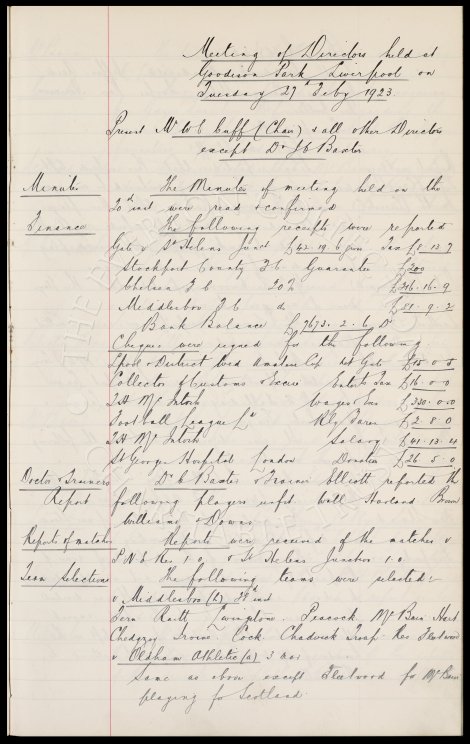 Meeting of Directors held at
Goodison Park Liverpool on
Tuesday 27th Feby 1923.
Present Mr W C Cuff (Chair) & all other Directors
except Dr J C Baxter
Minutes
The Minutes of meeting held on the
20th inst were read & confirmed
Finance
The following receipts were reported
Gate v St Helens Junct £42.19.6 Tax £8.13.7
Stockport County F C Guarantee £200
Chelsea F C 20% £216.16.9
Middlesbro F C do £81.9.2
Bank Balance £7673.2.6 Dr
Cheques were signed for the following:
Lpool & District Wed Amateur Cup Gate £15.0.0
Collector of Customs & Excise Enterts Tax £16.0.0
T H McIntosh Wages Exs £330.0.0
Football League Ld Rly Fares £2.8.0
T H McIntosh Salary £41.13.4
St Georges Hospital London Donation £26.5.0
Doctor & Trainers
Report
Dr C Baxter & Trainer Elliott reported the
following players unfit Wall Harland Brown
Williams & Downs
Reports of matches
Reports were received of the matches v
P N E Res 1.0 & St Helens Junction 1.0
Team Selections
The following teams were selected:-
v Middlesbro (h) inst
Fern Raitt Livingstone Peacock McBain Hart
Chedgzoy Irvine Cock Chadwick Troup Res Fleetwood
v Oldham Athletic (a) 3 Mar
Same as above except Fleetwood for McBain
playing for Scotland